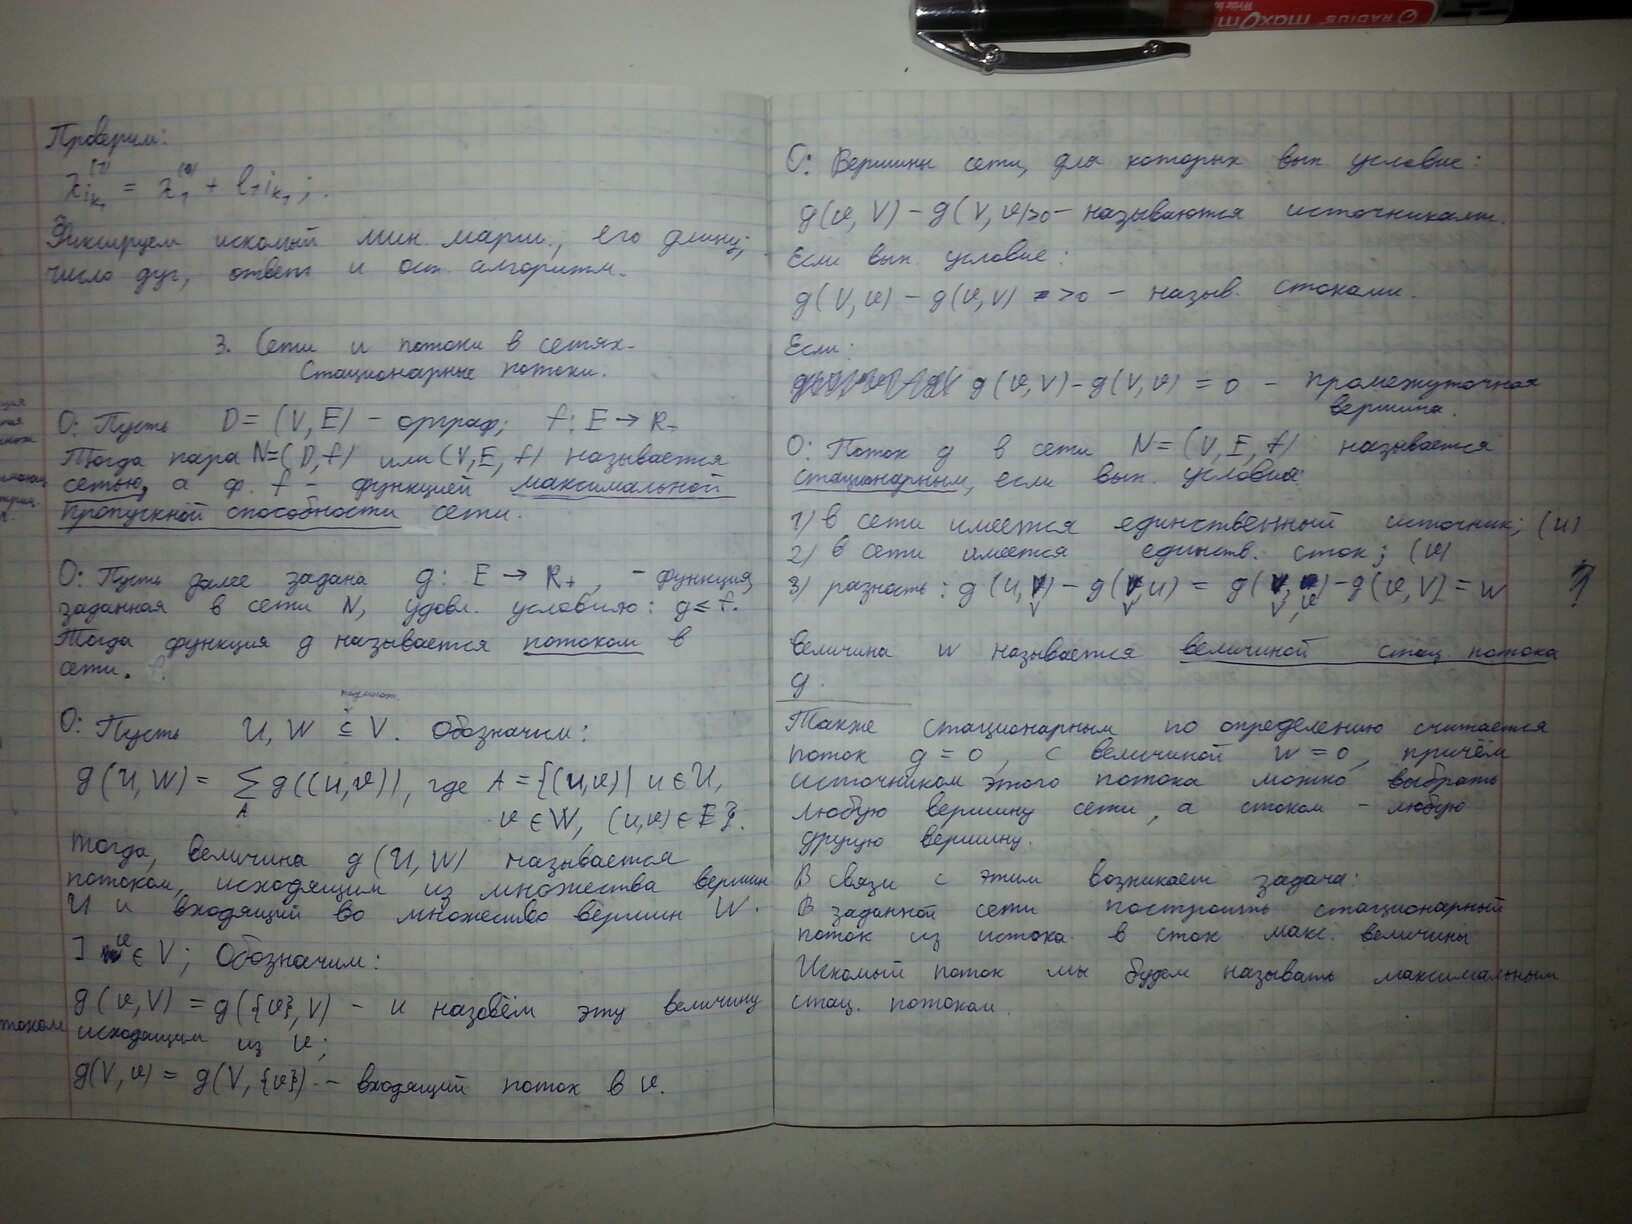 Проверим:
x_{i_{k_1}}^{(1)} = x_1^{(0)} + l_{1 i_{k_1}};.
Фиксируем искомый мин. марш., его длину,
число дуг, ответ и ост. алгоритм.
3. Сети и потоки в сетях.
Стационарные потоки.
О: Пусть D = (V, E) – орграф; f: E → R₊
Тогда пара N=(D, f) или (V, E, f) называется
сетью, а ф. f – функцией максимальной
пропускной способности сети.
О: Пусть далее задана g: E → R₊, – функция,
заданная в сети N, удовл. условию: g ≤ f.
Тогда функция g называется потоком в
сети.
подмнож.
О: Пусть U, W ⊆ V. Обозначим:
g(U, W) = ∑ g((u,v)), где A = {(u,v) | u ∈ U,
A
v ∈ W, (u,v) ∈ E}.
Тогда, величина g(U, W) называется
потоком, исходящим из множества вершин
U и входящий во множество вершин W.
] v ∈ V; Обозначим:
g(v, V) = g({v}, V) – и назовём эту величину
током исходящим из v;
g(V, v) = g(V, {v}) – входящий поток в v.
О: Вершины сети, для которых вып. условие:
g(v, V) – g(V, v) >0 – называются источниками.
Если вып. условие:
g(V, v) – g(v, V) >0 – назыв. стоками.
Если:
g(v, V) – g(V, v) = 0 – промежуточная
вершина.
О: Поток g в сети N = (V, E, f) называется
стационарным, если вып. условия:
1) в сети имеется единственный источник; (u)
2) в сети имеется единств. сток; (v)
3) разность: g(u, V) – g(V, u) = g(V, v) – g(v, V) = w
величина w называется величиной стац. потока
g.
Также стационарным по определению считается
поток g = 0, с величиной w = 0, причём
источником этого потока можно выбрать
любую вершину сети, а стоком – любую
другую вершину.
В связи с этим возникает задача:
В заданной сети построить стационарный
поток из истока в сток макс. величины
Искомый поток мы будем называть максимальным
стац. потоком.
RADIUS maxOm
Write in